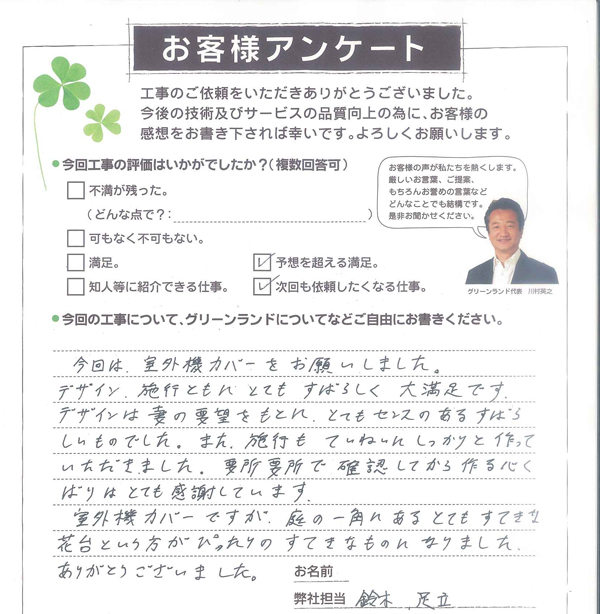 お客様アンケート
工事のご依頼をいただきありがとうございました。
今後の技術及びサービスの品質向上の為に、お客様の
感想をお書き下されば幸いです。よろしくお願いします。
●今回工事の評価はいかがでしたか?(複数回答可)
不満が残った。
(どんな点で?: )
可もなく不可もない。
満足。
予想を超える満足。
知人等に紹介できる仕事。
次回も依頼したくなる仕事。
お客様の声が私たちを熱くします。
厳しいお言葉、ご提案、
もちろんお誉めの言葉など
どんなことでも結構です。
是非お聞かせください。
グリーンランド代表 川村英之
●今回の工事について、グリーンランドについてなどご自由にお書きください。
今回は、室外機カバーをお願いしました。
デザイン、施行ともにとてもすばらしく大満足です。
デザインは妻の要望をもとに、とてもセンスのあるすばら
しいものでした。また、施行もていねいにしっかりと作って
いただきました。要所要所で確認してから作る心く
ばりはとても感謝しています。
室外機カバーですが、庭の一角にあるとてもすてきな
花台という方がぴったりのすてきなものになりました。
ありがとうございました。
お名前
弊社担当 鈴木 足立